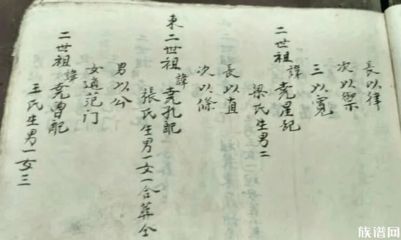 長以律
次以禦
三以寬
二世祖諱堯星配
梁氏生男二
長以直
次以條
東二世祖諱堯孔配
張氏生男一女一合葬仝
男以公
女適范门
二世祖諱堯曾配
王氏生男一女三
族谱网